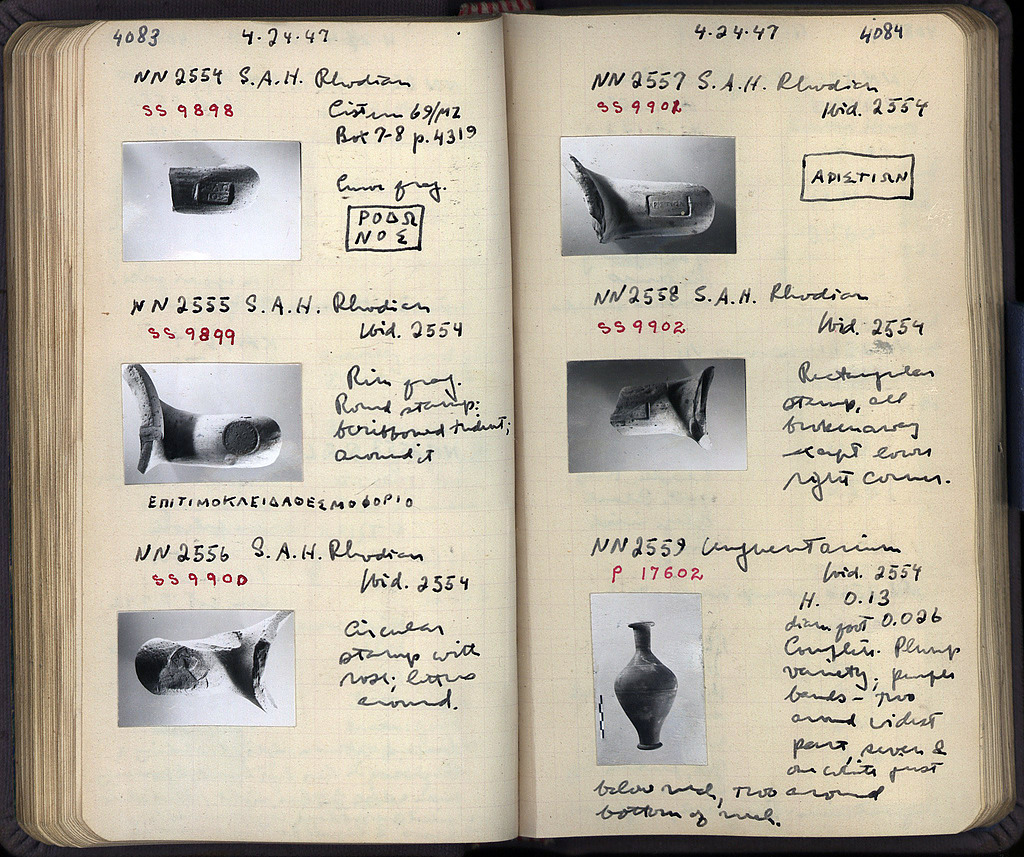 4083 4.24.47
NN 2554 S.A.H. Rhodian
SS 9898
Cistern 69/MZ
Box 7-8 p. 4319
Curve frag.
ΡΟΔΩ
ΝΟΣ
NN 2555 S.A.H. Rhodian
SS 9899
Ibid. 2554
Rim frag.
Round stamp:
trident;
around it
ΕΠΙΤΙΜΟΚΛΕΙΔΑΘΕΣΜΟΦΟΡΙΟ
NN 2556 S.A.H. Rhodian
SS 9900
Ibid. 2554
Circular
stamp with
rose; letters
around.
4.24.47 4084
NN 2557 S.A.H. Rhodian
SS 9902
Ibid. 2554
ΑΡΙΣΤΙΩΝ
NN 2558 S.A.H. Rhodian
SS 9902
Ibid. 2554
Rectangular
stamp, all
broken away
except lower
right corner.
NN 2559 Unguentarium
P 17602
Ibid. 2554
H. 0.13
diam foot 0.026
Complete. Plump
variety; purple
bands – two
around widest
part, seven &
one white just
below neck, two around
bottom of neck.